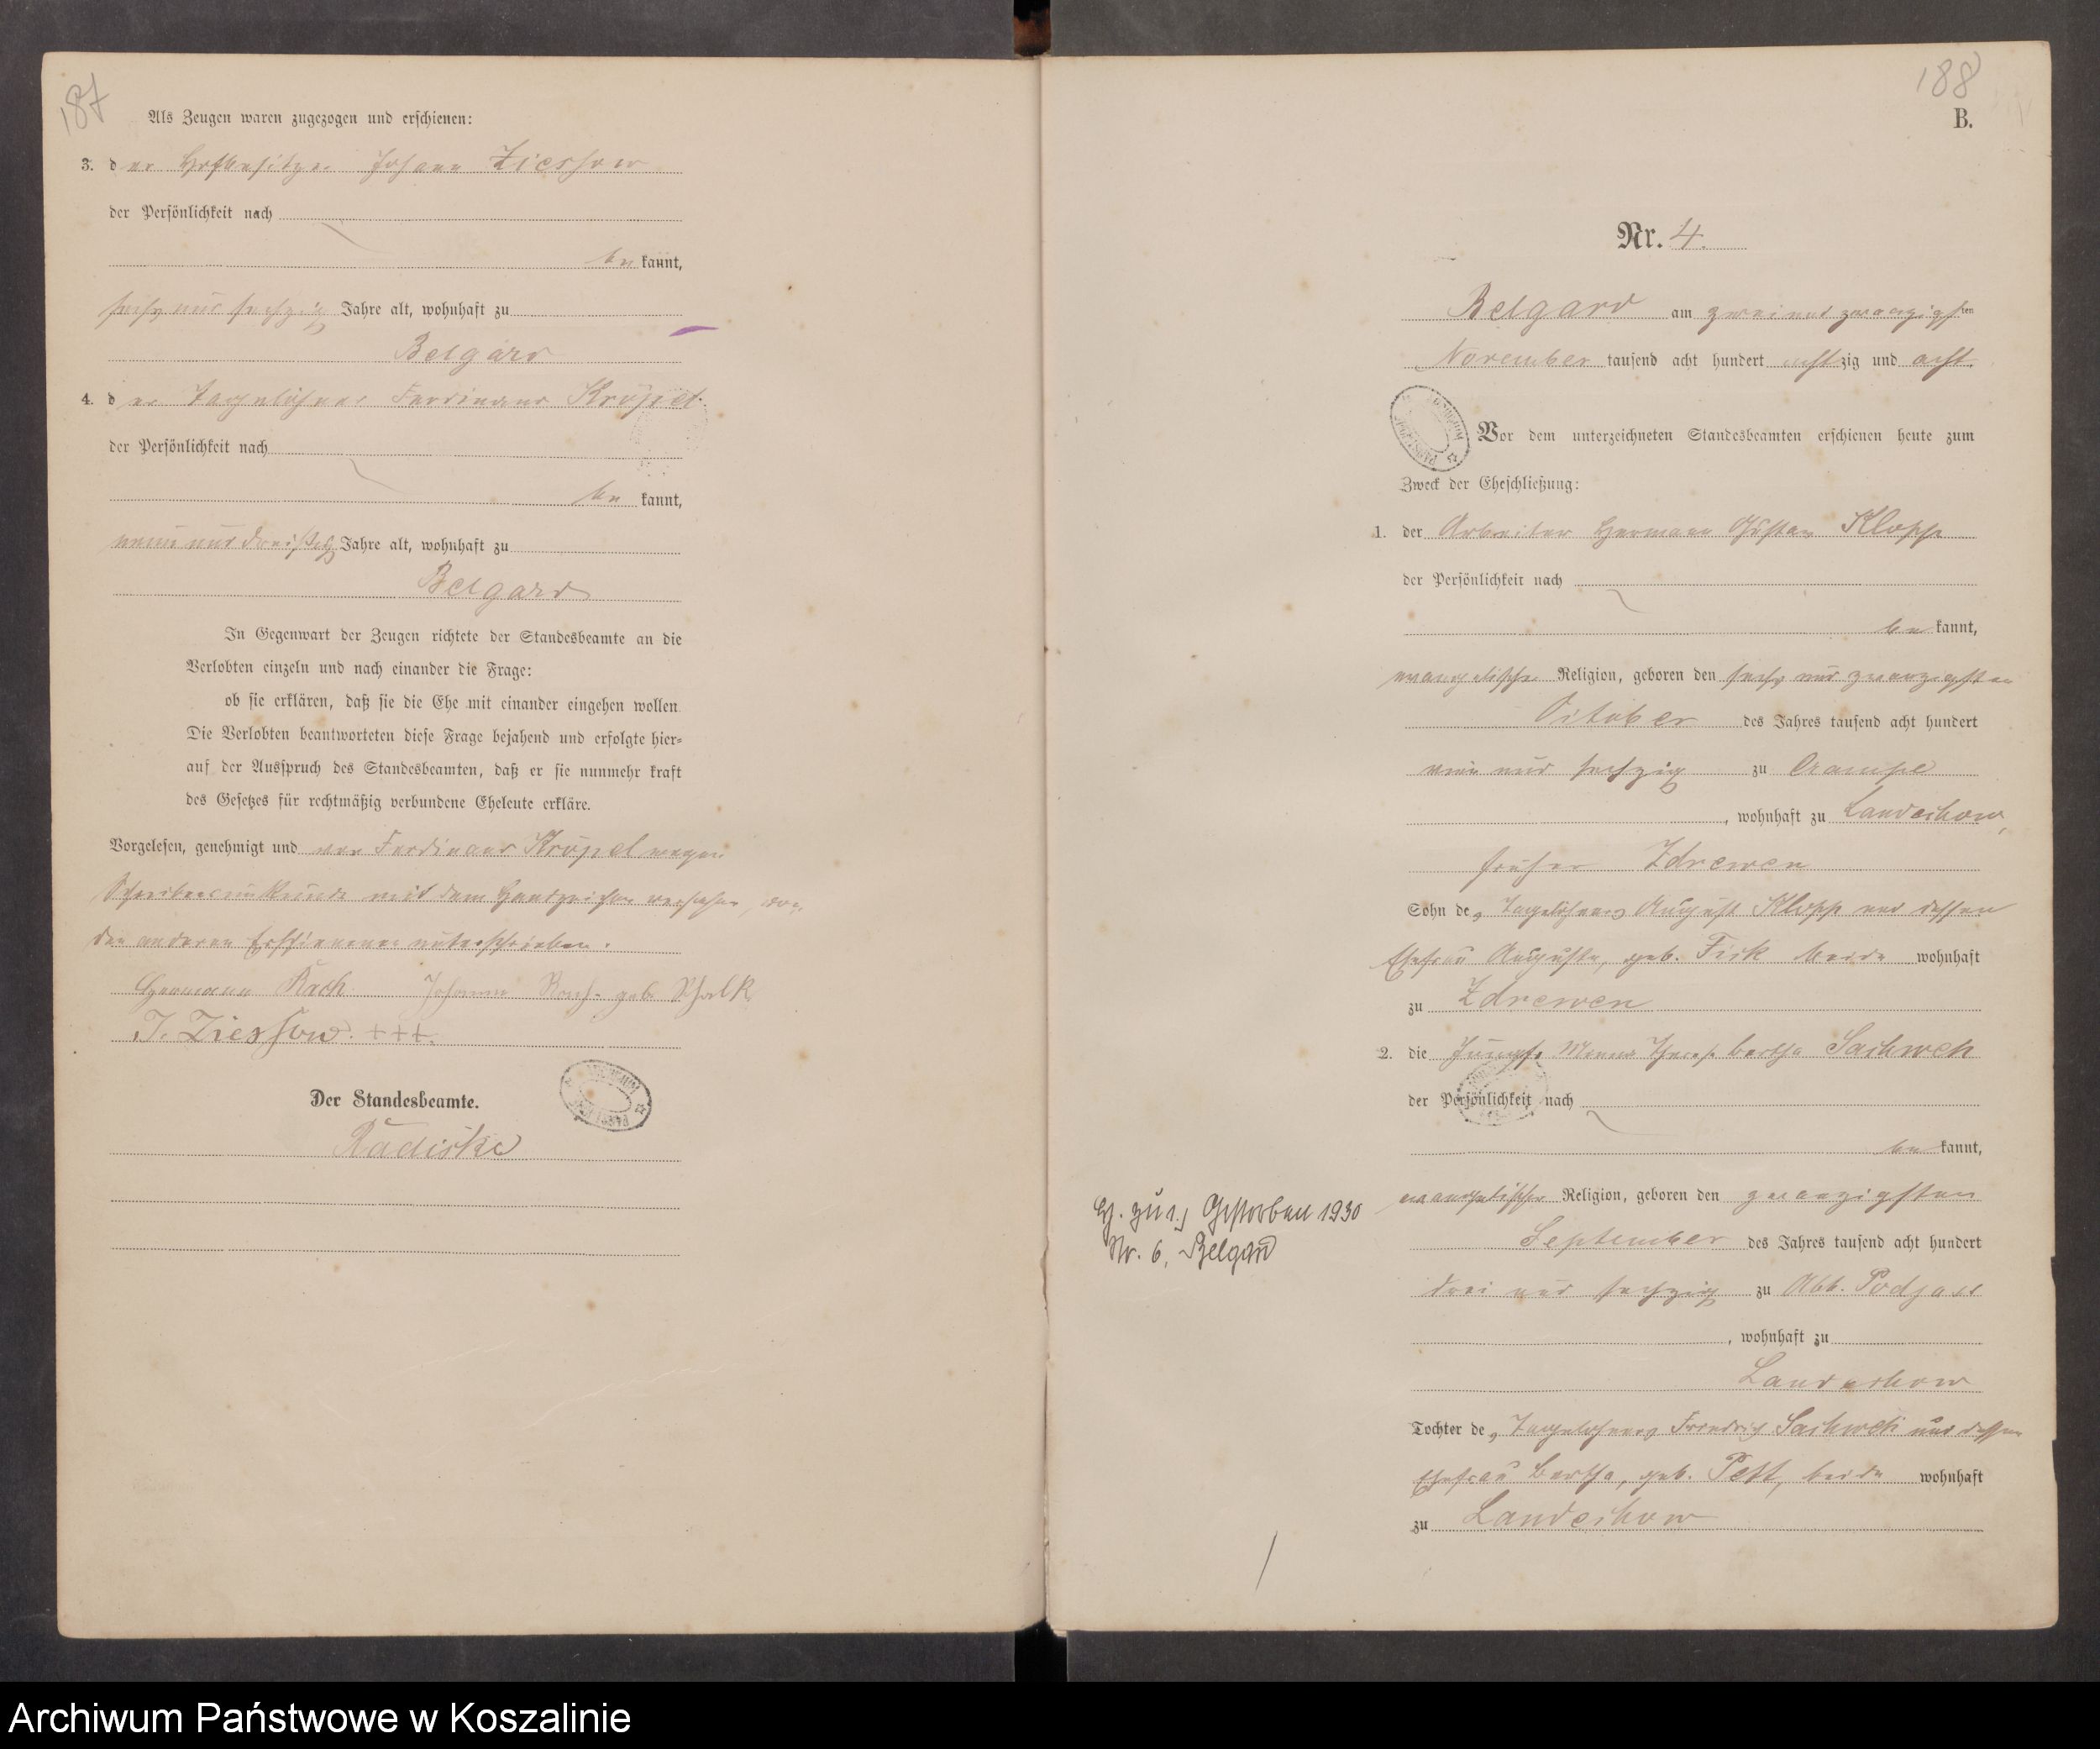 187
Als Zeugen waren zugezogen und erschienen:
3. der Hofbesitzer Johann Ziessow
der Persönlichkeit nach
bekannt,
sechs und sechzig Jahre alt, wohnhaft zu
Belgard
4. der Tagelöhner Ferdinand Kröpel
der Persönlichkeit nach
bekannt,
neun und dreißig Jahre alt, wohnhaft zu
Belgard
In Gegenwart der Zeugen richtete der Standesbeamte an die
Verlobten einzeln und nach einander die Frage:
ob sie erklären, daß sie die Ehe mit einander eingehen wollen
Die Verlobten beantworteten diese Frage bejahend und erfolgte hier-
auf der Ausspruch des Standesbeamten, daß er sie nunmehr kraft
des Gesetzes für rechtmäßig verbundene Eheleute erkläre.
Vorgelesen, genehmigt und von Ferdinand Kröpel wegen
Schreibensunkunde mit dem Handzeichen versehen, von
den anderen Erschienenen unterschrieben.
Hermann Rach Johanne Rach geb. Schalk
J. Ziessow. +++.
Der Standesbeamte.
Radiske
188
B.
Nr. 4.
Belgard am zwei und zwanzigsten
November tausend acht hundert achtzig und acht.
Vor dem unterzeichneten Standesbeamten erschienen heute zum
Zweck der Eheschließung:
1. der Arbeiter Hermann Gustav Klopp
der Persönlichkeit nach
bekannt,
evangelischer Religion, geboren den sechs und zwanzigsten
October des Jahres tausend acht hundert
neun und sechzig zu Crampe
, wohnhaft zu Landechow,
früher Zdrewen
Sohn des Tagelöhners August Klopp und dessen
Ehefrau Auguste, geb. Fick beide wohnhaft
zu Zdrewen
2. die Jungfr. Bertha Sachweh
der Persönlichkeit nach
bekannt,
evangelischer Religion, geboren den zwanzigsten
September des Jahres tausend acht hundert
drei und sechzig zu Abb. Podjass
, wohnhaft zu
Landechow
Tochter des Tagelöhners Friedrich Sachweh und dessen
Ehefrau Bertha, geb. Pett, beide wohnhaft
zu Landechow
H. zu 1.) Gestorben 1930
Nr. 6, Belgard
Archiwum Państwowe w Koszalinie